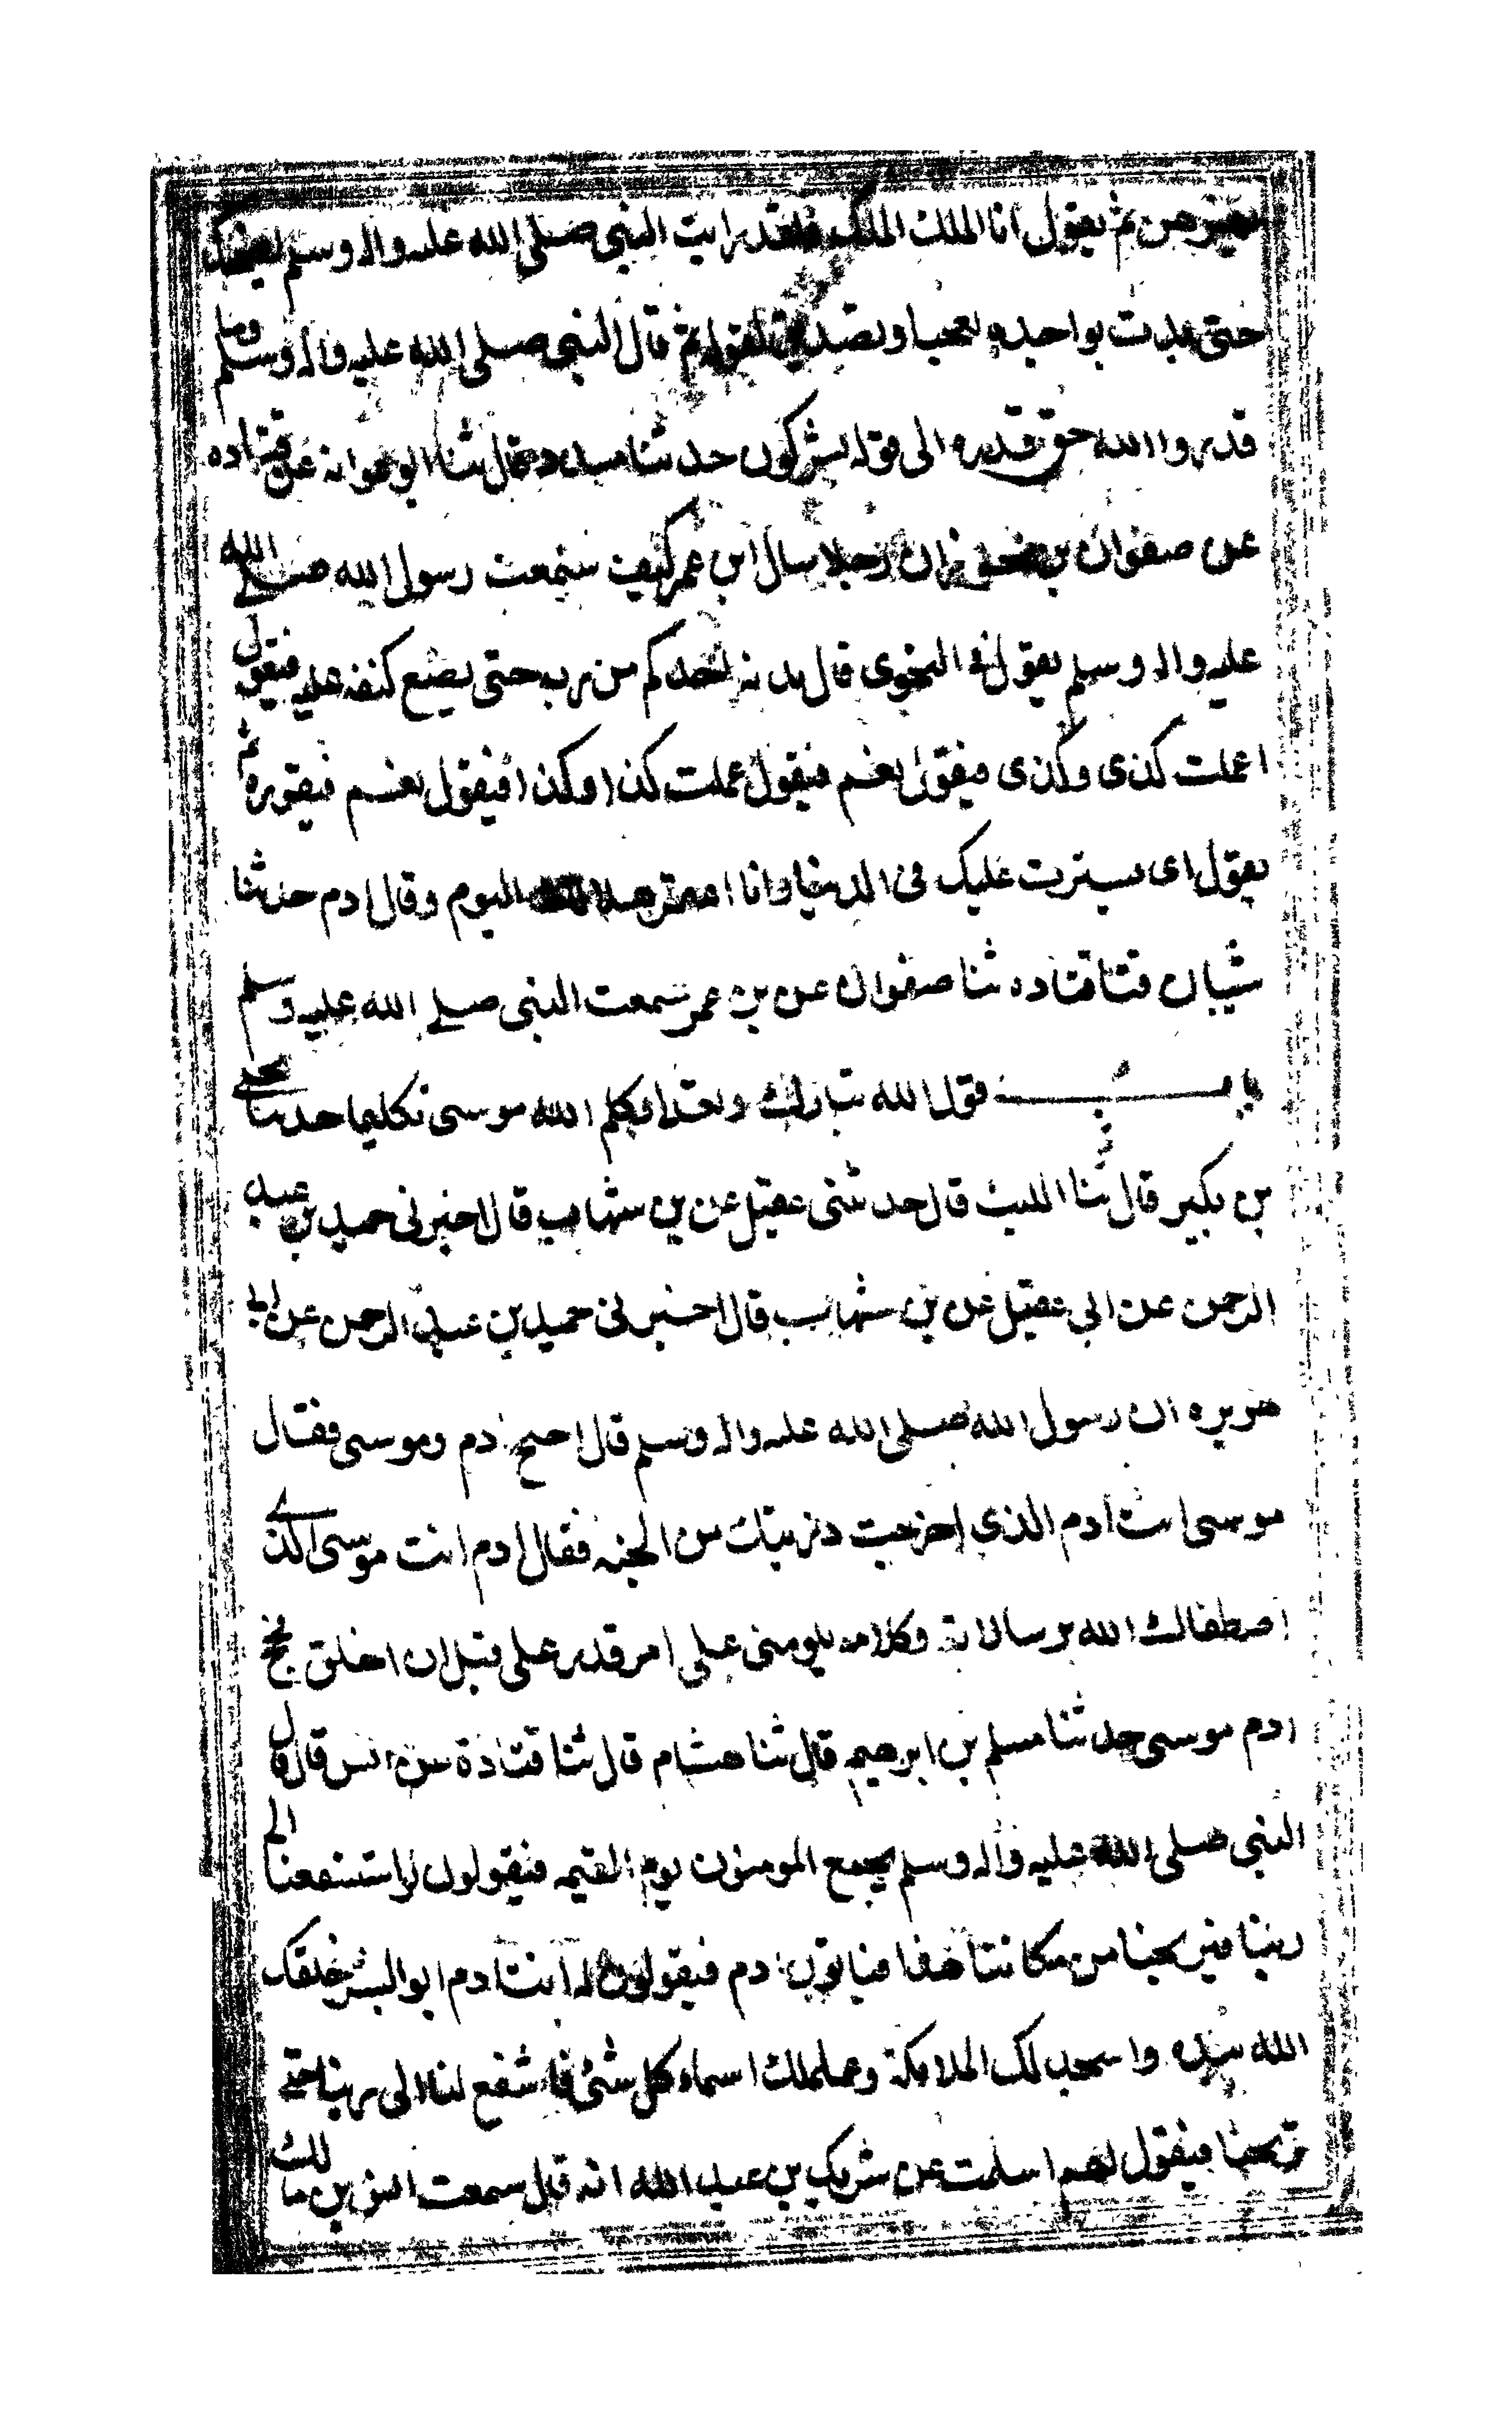 يهزهن ثم يقول انا الملك الملك فلقد رايت النبي صلى الله عليه واله وسلم يضحك
حتى بدت نواجده تعجبا وتصديقا لقوله ثم قال النبي صلى الله عليه واله وسلم وما
قدروا الله حق قدره الى قوله يشركون حدثنا مسدد قال ثنا ابو عوانه عن قتاده
عن صفوان بن محرز ان رجلا سال ابن عمر كيف سمعت رسول الله صلى الله
عليه واله وسلم يقول في النجوى قال يدنو احدكم من ربه حتى يضع كنفه عليه فيقول
اعملت كذى وكذى فيقول نعم فيقول عملت كذا وكذا فيقول نعم فيقرره ثم
يقول اى سترت عليك فى الدنيا وانا اليوم وقال ادم حدثنا
شيبان قثنا قتاده ثنا صفوان عن بن عمر سمعت النبى صلى الله عليه وسلم
باب قول الله تبارك وتعالى وكلم الله موسى تكليما حدثنا يحيى
بن بكير قال ثنا الليث قال حدثنى عقيل عن بن شهاب قال اخبرنى حميد بن عبد
الرحمن عن ابي عقيل عن بن شهاب قال اخبرنى حميد بن عبد الرحمن عن ابي
هريره ان رسول الله صلى الله عليه واله وسلم قال احتج ادم وموسى فقال
موسى انت ادم الذي اخرجت ذريتك من الجنه فقال ادم انت موسى الذي
اصطفاك الله برسالاته وكلامه تلومنى على امر قدر على قبل ان اخلق فحج
ادم موسى حدثنا مسلم بن ابرهيم قال ثنا هشام قال ثنا قتادة عن انس قال قال
النبى صلى الله عليه واله وسلم يجمع المومنون يوم القيمه فيقولون لو استشفعنا الى
ربنا فيريحنا من مكاننا هذا فياتون ادم فيقولون له انت ادم ابو البشر خلقك
الله بيده واسجد لك الملايكة وعلمك اسماء كل شئ فاشفع لنا الى ربنا حتى
يريحنا فيقول لهم اسلمت عن شريك بن عبد الله انه قال سمعت انس بن مالك